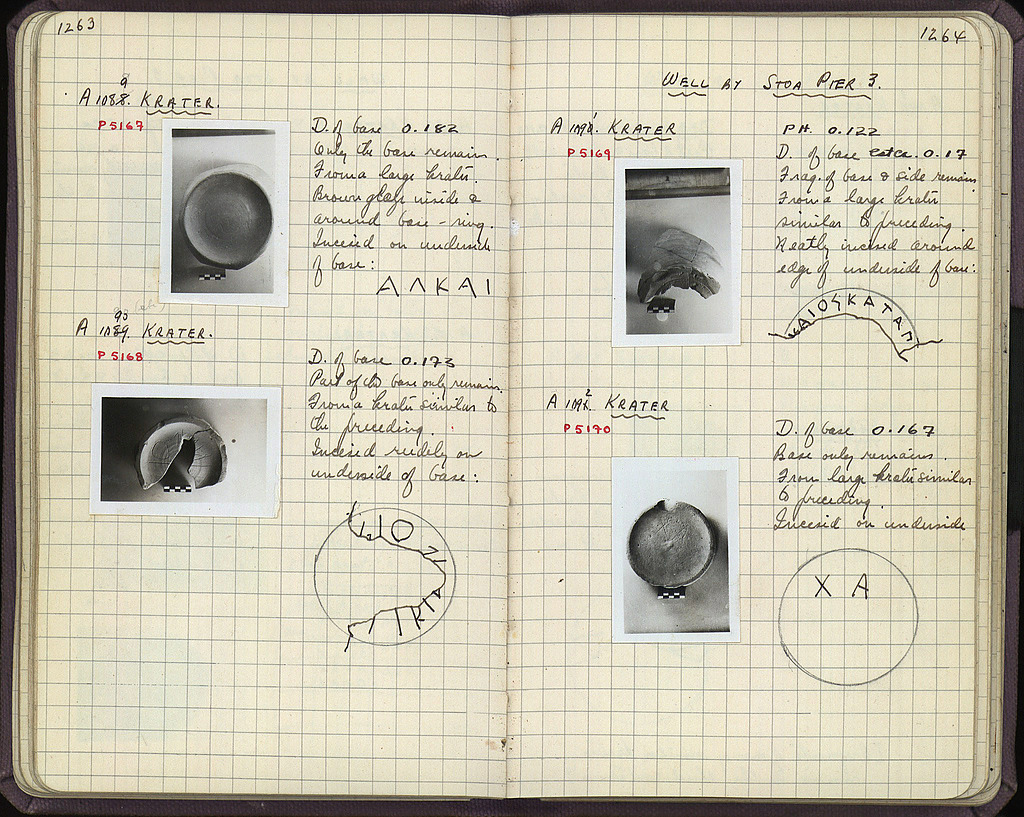 1263
9
A 1088. KRATER.
P 5167
D. of base 0.182
Only the base remains.
From a large krater.
Brown glaze inside &
around base-ring.
Incised on underside
of base:
ΑΛΚΑΙ
90
A 1089. KRATER.
P 5168
D. of base 0.173
Part of the base only remains.
From a krater similar to
the preceding.
Incised rudely on
underside of base:
ΤΡΙΑ
1264
WELL BY STOA PIER 3.
A KRATER
P 5169
PH. 0.122
D. of base 0.17
Frag. of base & side remains
From a large krater
similar to preceding.
Neatly incised around
edge of underside of base:
ΑΙΟΣΚΑΤΑΠ
2
A KRATER
P 5170
D. of base 0.167
Base only remains.
From large krater similar
to preceding.
Incised on underside
Χ Α